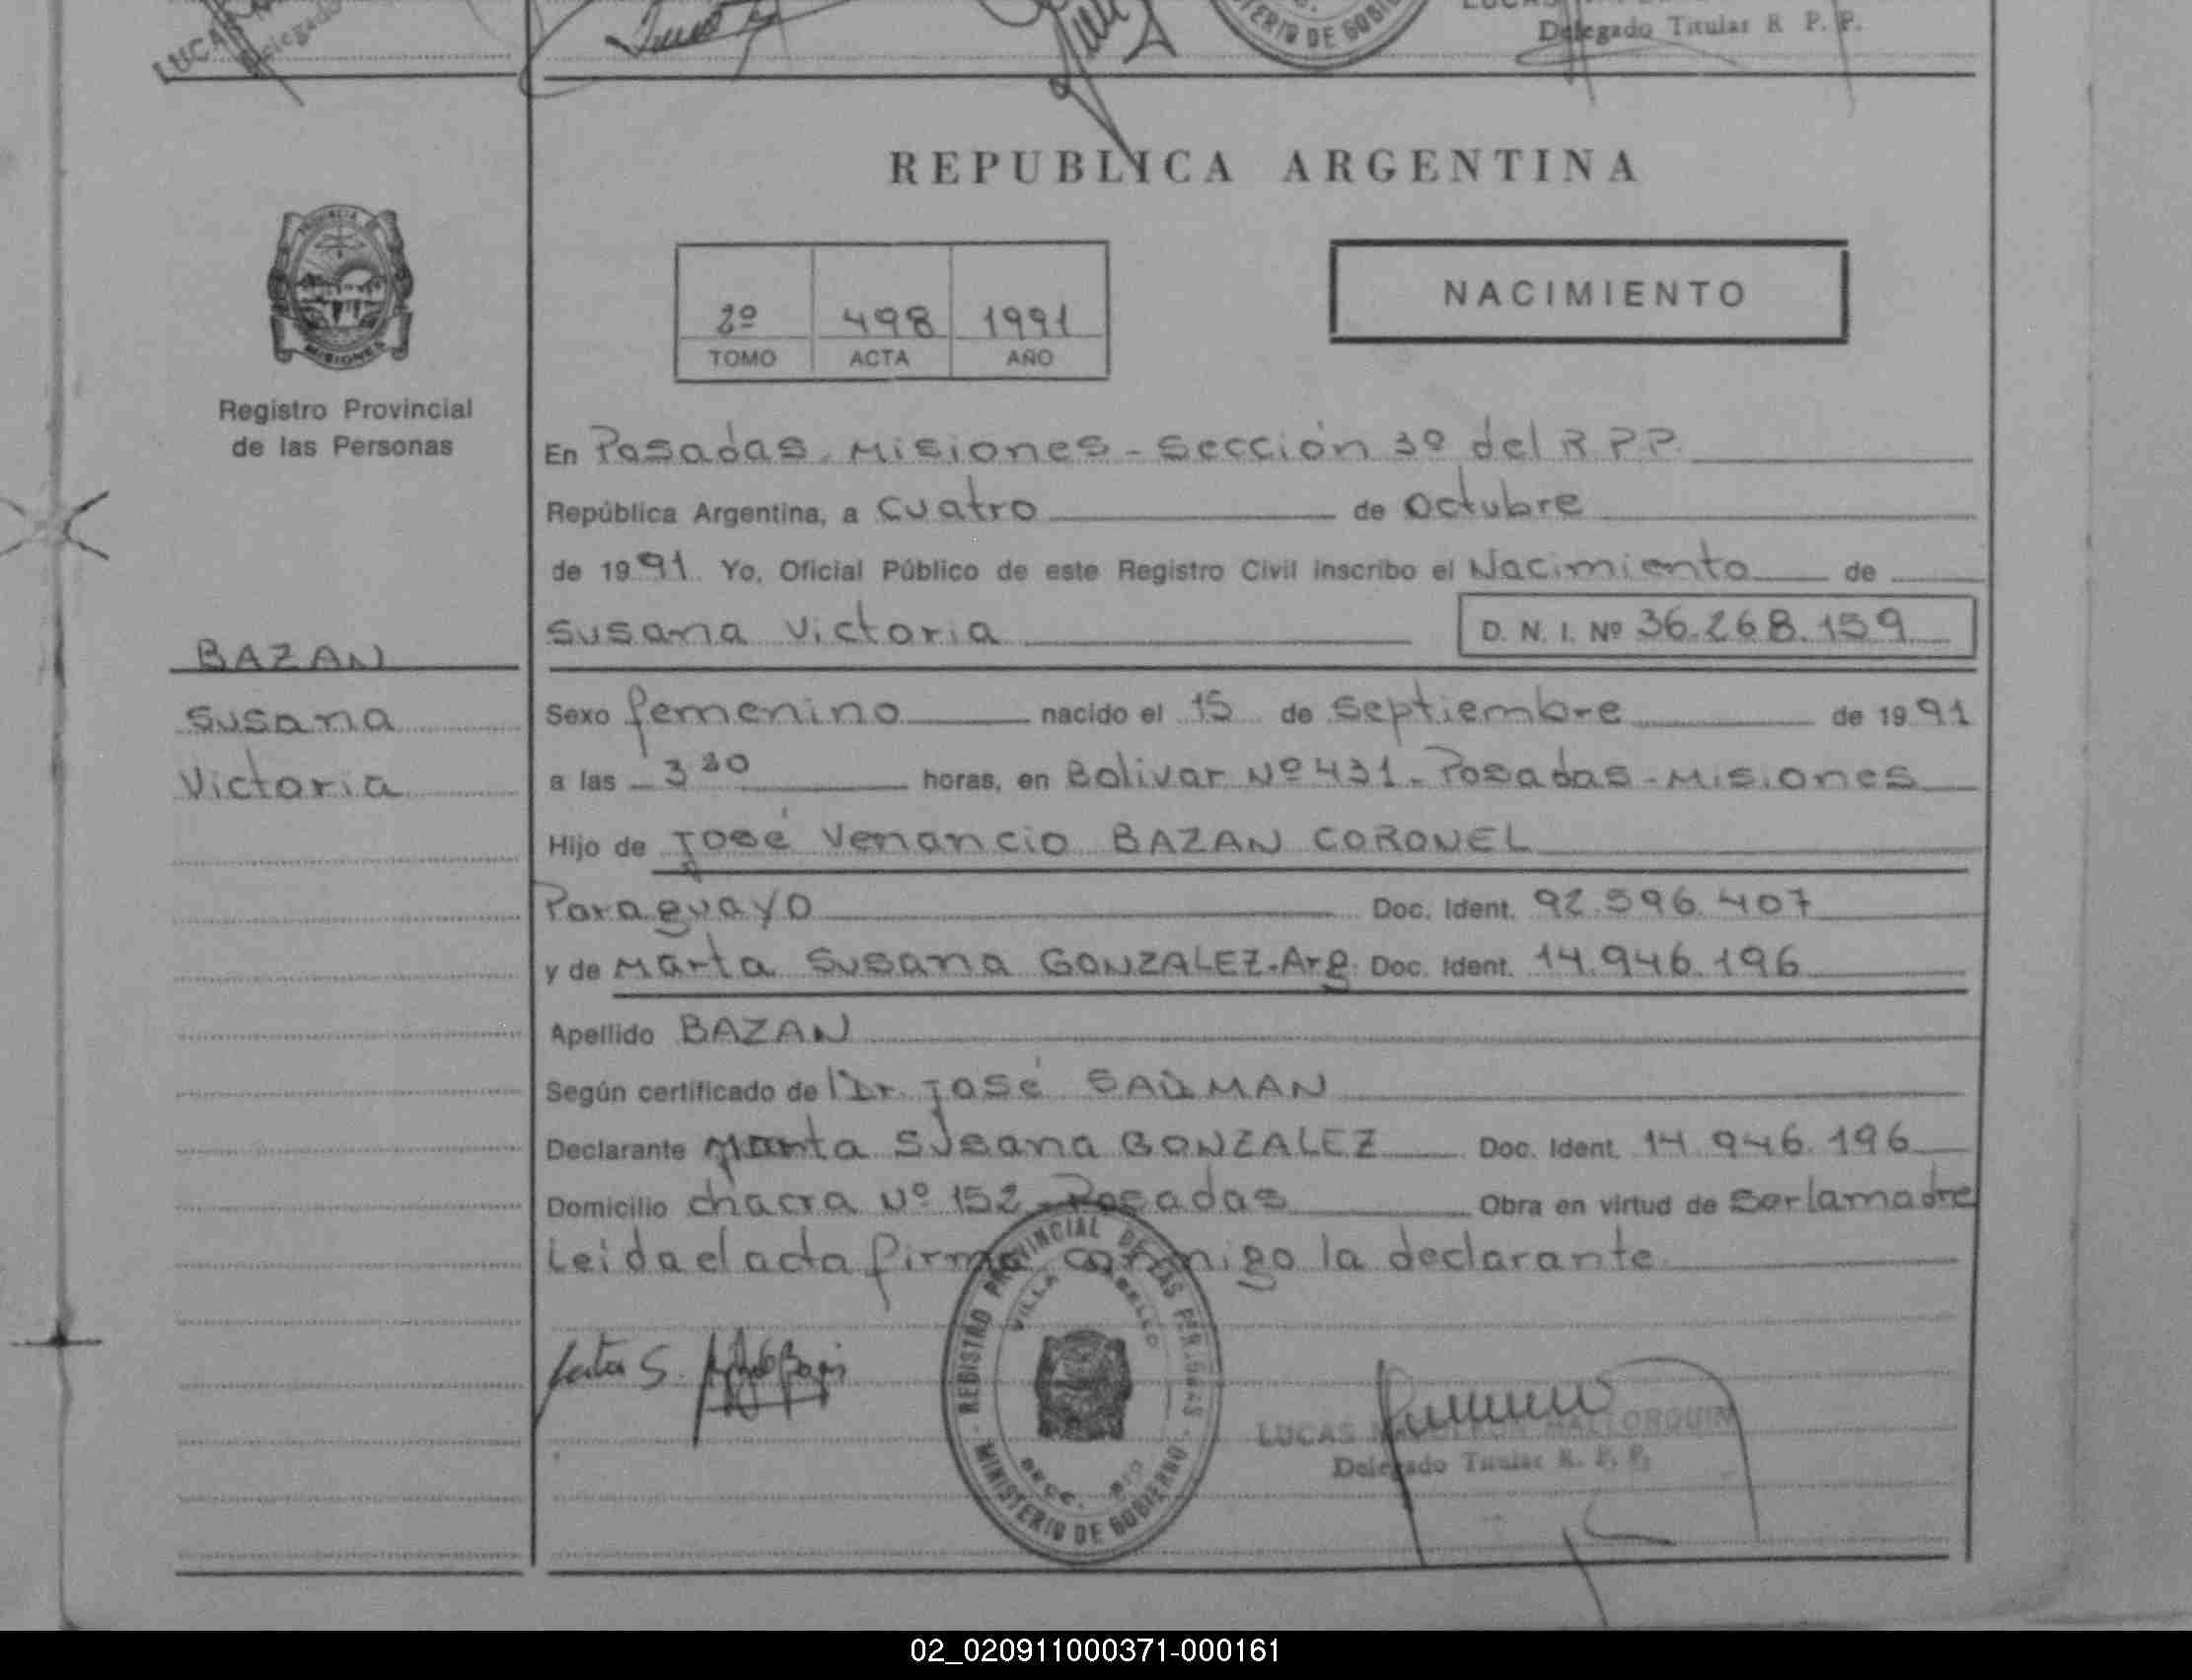 LUCAS
Delegado
Delegado Titular R. P. P.
MINISTERIO DE GOBIERNO
REPUBLICA ARGENTINA
PROVINCIA DE
MISIONES
2º 498 1991
TOMO ACTA AÑO
NACIMIENTO
Registro Provincial
de las Personas
En Posadas. Misiones - Sección 3º del R P P.
República Argentina, a cuatro de octubre
de 1991. Yo, Oficial Público de este Registro Civil inscribo el Nacimiento de
Susana Victoria D. N. I. Nº 36.268.159
BAZAN
Susana
Victoria
Sexo femenino nacido el 15 de septiembre de 1991
a las 3 30 horas, en Bolivar Nº 431 - Posadas - Misiones
Hijo de José Venancio BAZAN CORONEL
Paraguayo Doc. Ident. 92.596.407
y de Marta Susana GONZALEZ-Arg. Doc. Ident. 14.946.196
Apellido BAZAN
Según certificado de l Dr. José
Declarante Marta Susana GONZALEZ Doc. Ident. 14.946.196
Domicilio chacra Nº 152 - Posadas Obra en virtud de ser la madre
Leida el acta firma conmigo la declarante
REGISTRO PROVINCIAL DE LAS PERSONAS
VILLA CABELLO
SECC. 3ra
MINISTERIO DE GOBIERNO
LUCAS NAPOLEON MALLORQUIN
Delegado Titular R. P. P.
02_020911000371-000161